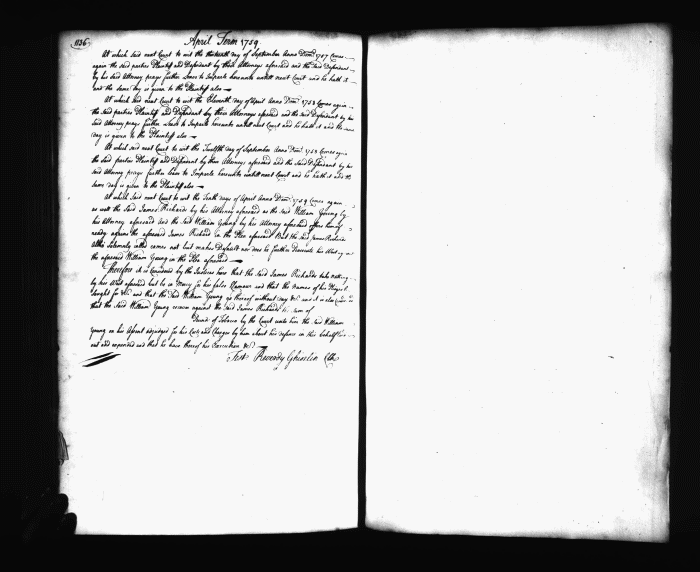 1136
April Term 1759
At which said next Court to wit the thirteenth day of September Anno Dom: 1757 Comes
again the said parties Plaintiff and Defendant by their Attorneys aforesaid and the said Defendant
by his said Attorney prays further Leave to Imparle hereunto untill next Court and he hath it
and the same day is given to the Plaintiff also
At which said next Court to wit the Eleventh day of April Anno Dom: 1758 Comes again
the said parties Plaintiff and Defendant by their Attorneys aforesaid and the said Defendant by his
said Attorney prays further leave to Imparle hereunto untill next Court and he hath it and the same
day is given to the Plaintiff also
At which said next Court to wit the Twelfth day of September Anno Dom: 1758 Comes again
the said parties Plaintiff and Defendant by their Attorneys aforesaid and the said Defendant by his
said Attorney prays further leave to Imparle hereunto untill next Court and he hath it and the
same day is given to the Plaintiff also
At which said next Court to wit the Tenth day of April Anno Dom: 1759 Comes again
as well the said James Richards by his Attorney aforesaid as the said William Young by
his Attorney aforesaid and the said William Young by his Attorney aforesaid offers himself
ready against the aforesaid James Richards in the Plea aforesaid But the said James Richards
altho Solemnly called comes not but makes Default nor does he further Prosecute his Writ against
the aforesaid William Young in the Plea aforesaid
Therefore it is Considered by the Justices here that the said James Richards take nothing
by his Writ aforesaid but be in Mercy for his false Clamour and that the names of his Pledges be
Sought for &c and that the said William Young go thereof without day &c and it is also Considered
that the said William Young recover against the said James Richards the sum of
Pounds of Tobacco by the Court unto him the said William
Young on his Assent adjudged for his Costs and Charges by him about his defence in this behalf laid
out and expended and that he have thereof his Execution &c
Test Reverdy Ghiselin Clk